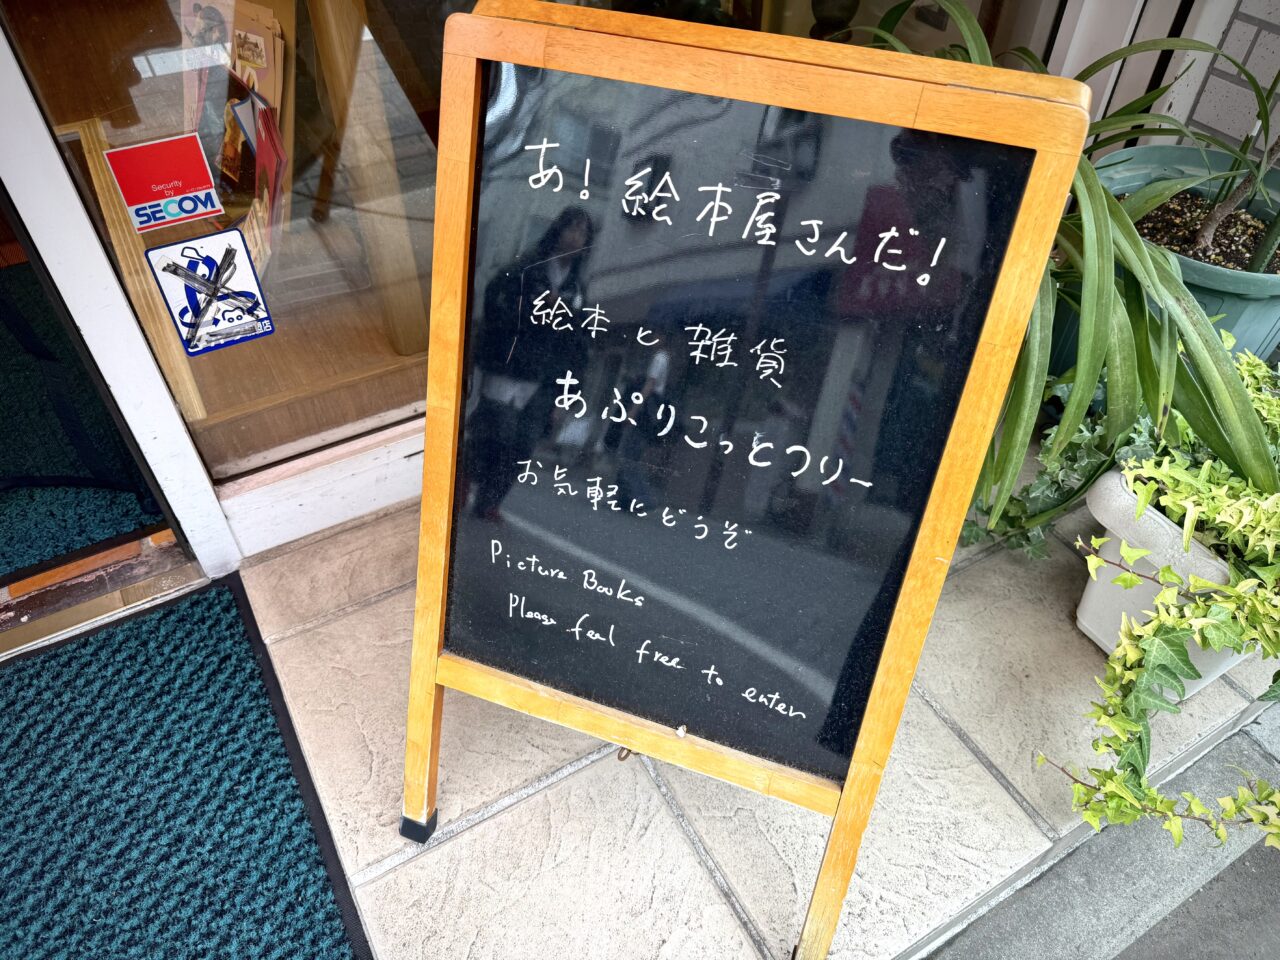 Security
by
SECOM
店
あ!絵本屋さんだ!
絵本と雑貨
あぷりこっとつりー
お気軽にどうぞ
Picture Books
Please feel free to enter